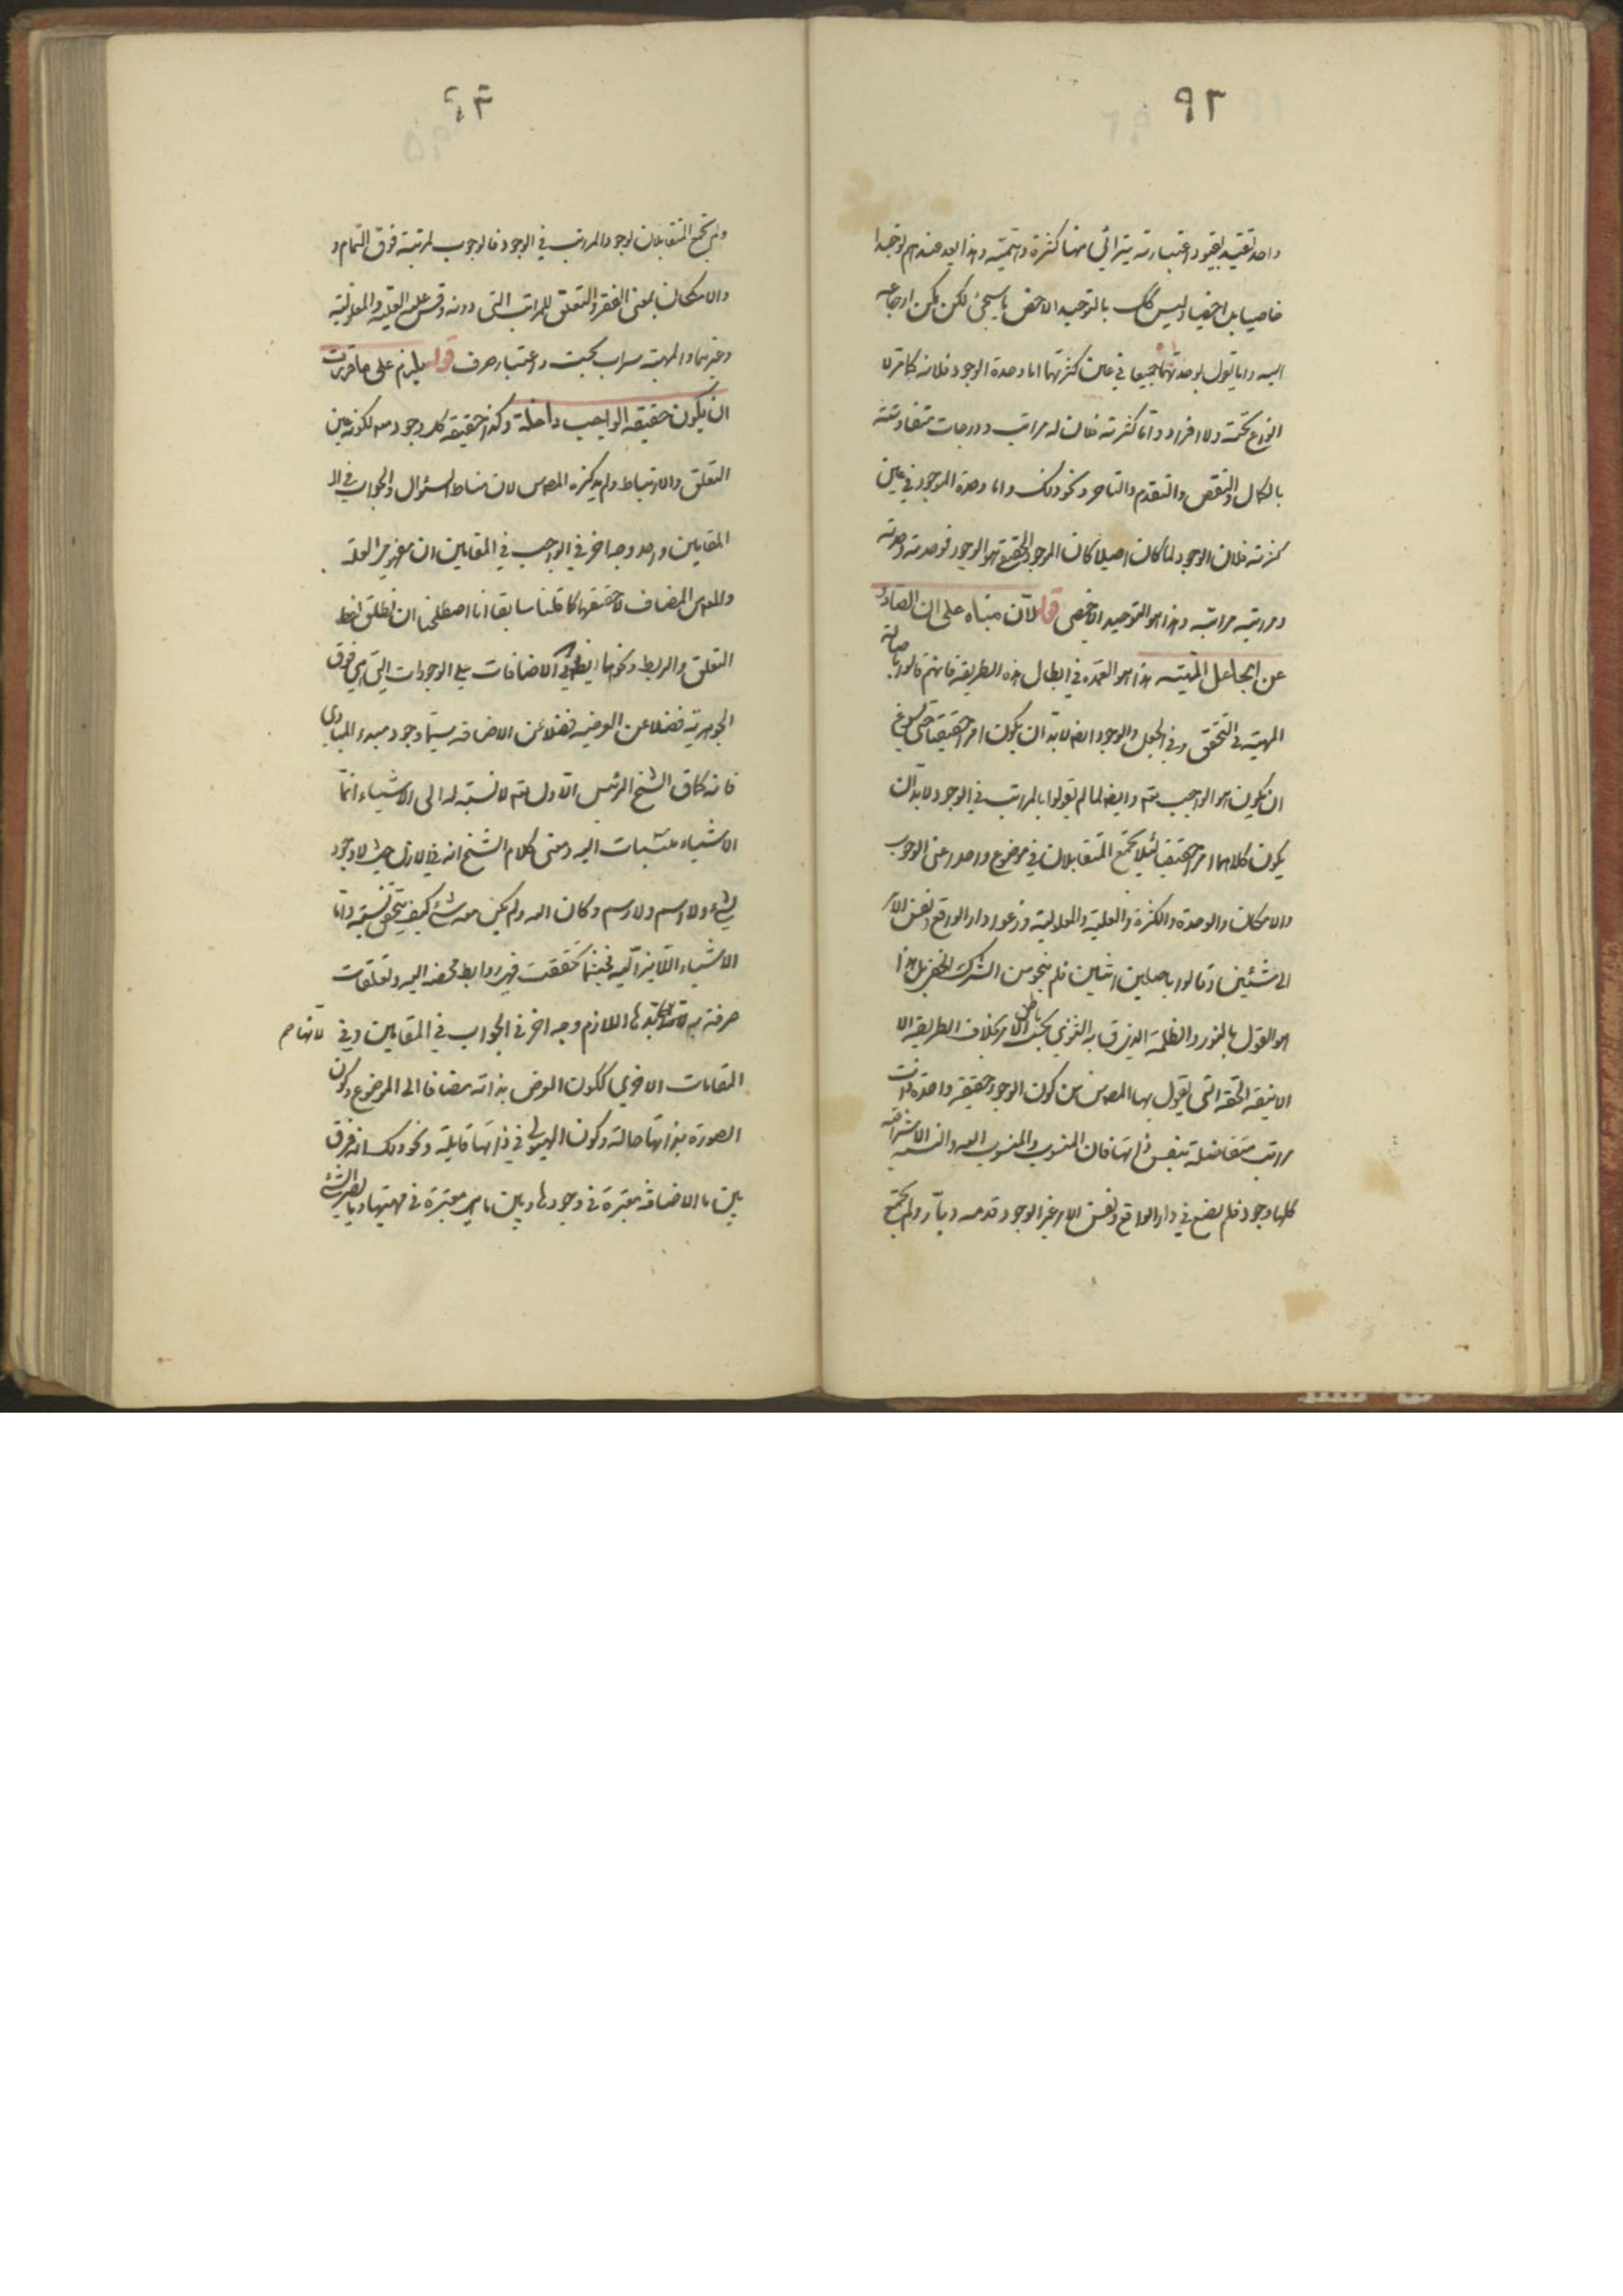 ٩٢
واحد لتقييد بقيود اعتبارية يترائى منها كثرة وهمية وهذا يعد عندهم توحيدا
خاصيا بل اخصيا وليس كك بالتوحيد الاخص ما سيجئ لكن يمكن ارجاعه
اليه واما يقول بوحدتهما جميعا في عين كثرتهما اما وحدة الوجود فلانه كما مر لا
انواع تحته ولا افراد واما كثرته فلان له مراتب ودرجات متفاوتة
بالكمال والنقص والتقدم والتاخر ونحو ذلك واما وحدة الموجود في عين
كثرته فلان الوجود لما كان اصيلا كان الموجود الحقيقي هو الوجود فوحدته وحدته
ومراتبه مراتبه وهذا هو التوحيد الاخصى قوله لان مبناه على ان الصادر
عن الجاعل المهية هذا هو العمدة في ابطال هذه الطريقة فانهم قالوا باصالة
المهية في التحقق وفي الجعل والوجود ايضا لابد ان يكون امرا حقيقيا حتى يسوغ
ان يكون هو الواجب تعم وايضا لما لم يقولوا بالمراتب في الوجود لابد ان
يكون كلاهما امرا حقيقيا لئلا يجتمع المتقابلان في موضوع واحد اعنى الوجوب
والامكان والوحدة والكثرة والعلية والمعلولية وزعوا دار الواقع ونفس الامر
الى شيئين وقالوا باصلين اثنين فلم ينجو من الشرك الخفى بل هذا
هو القول بالنور والظلمة الذى ق به الثنوى بحسب باطن الامر بخلاف الطريقة الا
الانيقة الحقة التى يقول بها المص من كون الوجود حقيقة واحدة ذات
مراتب متفاضلة بنفس ذاتها فان المنسوب والمنسوب اليه والنسبة الاشراقية
كلها وجود فلم يضع في دار الواقع ونفس الامر غير الوجود قدمه ديار ولم يجتمع
٩٣
ولم يجتمع المتقابلان لوجود المراتب في الوجود فالوجوب لمرتبة فوق التمام و
والامكان بمعنى الفقر والتعلق للمراتب التى دونه وقس عليه العلية والمعلولية
وغيرهما والمهية سراب بحت واعتبار صرف قوله يلزم على ما قررت
ان يكون حقيقة الواجب داخلة وكذا حقيقة كل وجود معه لكونه عين
التعلق والارتباط ولم يذكره المص لان مناط السؤال والجواب في الا
المقامين واحد وجه اخر في الواجب في المقامين ان مفهوم العلة
والمص المضاف لا حقيقتهما كما قلنا سابقا انا اصطلحنا ان نطلق لفظ
التعلق والربط ونحوهما الاضافات على الوجودات التى هى فوق
الجوهرية فضلا عن العرضية فضلا عن الاضافة سيما وجود مبدء المبادى
فانه كما ق الشيخ الرئيس الاول تعم لا نسبة له الى الاشياء انما
الاشياء منتسبات اليه ومعنى كلام الشيخ انه في الازل حيث لا وجود
لشئ ولا اسم ولا رسم وكان الله ولم يكن معه شئ كيف يتحقق نسبة واما
الاشياء اللايزالية فحيثما تحققت فهى روابط محضة اليه وتعلقات
صرفة به اللازم وجه اخر في الجواب في المقامين وفى
المقامات الاخرى ككون العرض بذاته مضافا الى الموضوع وكون
الصورة بذاتها حالة وكون الهيولى في ذاتها قابلة ونحو ذلك انه فرق
بين ما الاضافة معتبرة في وجودها وبين ما هى معتبرة في مهيتها وبالضرب الشئ